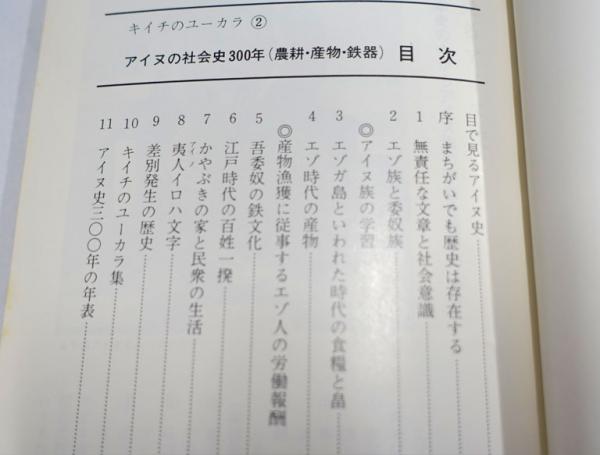 キイチのユーカラ②
アイヌの社会史300年(農耕・産物・鉄器) 目次
目で見るアイヌ史
序 まちがいでも歴史は存在する
1 無責任な文章と社会意識
2 エゾ族と委奴族
◎アイヌ族の学習
3 エゾガ島といわれた時代の食糧と畠
4 エゾ時代の産物
◎産物漁獲に従事するエゾ人の労働報酬
5 吾委奴の鉄文化
6 江戸時代の百姓一揆
7 かやぶきの家と民衆の生活
8 夷人イロハ文字
アイノ
9 差別発生の歴史
10 キイチのユーカラ集
11 アイヌ史三〇〇年の年表